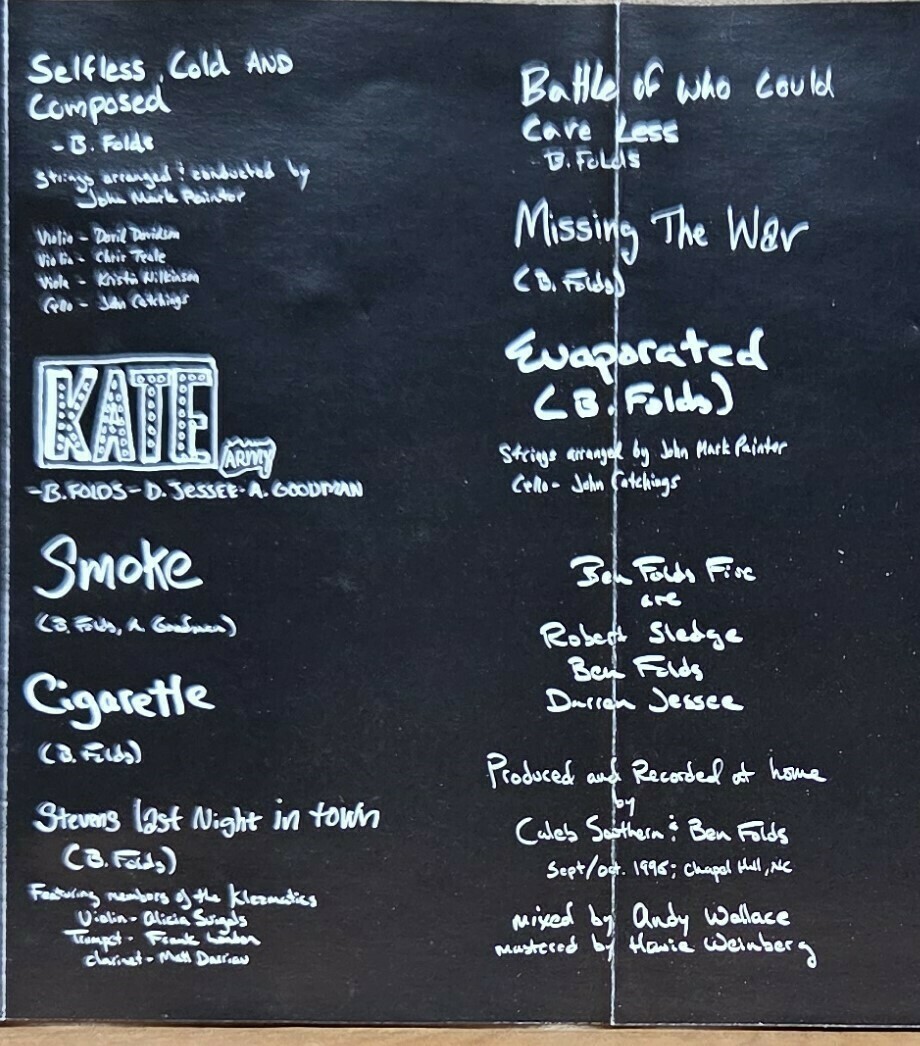 Selfless, Cold AND
Composed
- B. Folds
Strings arranged & conducted by
John Mark Painter
Violin - David Davidson
Violin - Chris Teale
Viola - Kristin Wilkinson
Cello - John Catchings
KATE
ARMY
-B. FOLDS-D. JESSEE-A. GOODMAN
Smoke
(B. Folds, A. Goodman)
Cigarette
(B. Folds)
Stevens last Night in town
(B. Folds)
Featuring members of the Klezmatics
Violin - Alicia Svigals
Trumpet - Frank London
Clarinet - Matt Darriau
Battle of who could
Care Less
- B. Folds
Missing The War
(B. Folds)
Evaporated
(B. Folds)
Strings arranged by John Mark Painter
Cello - John Catchings
Ben Folds Five
are
Robert Sledge
Ben Folds
Darren Jessee
Produced and Recorded at home
by
Caleb Southern & Ben Folds
Sept/Oct. 1996; Chapel Hill, NC
mixed by Andy Wallace
mastered by Howie Weinberg